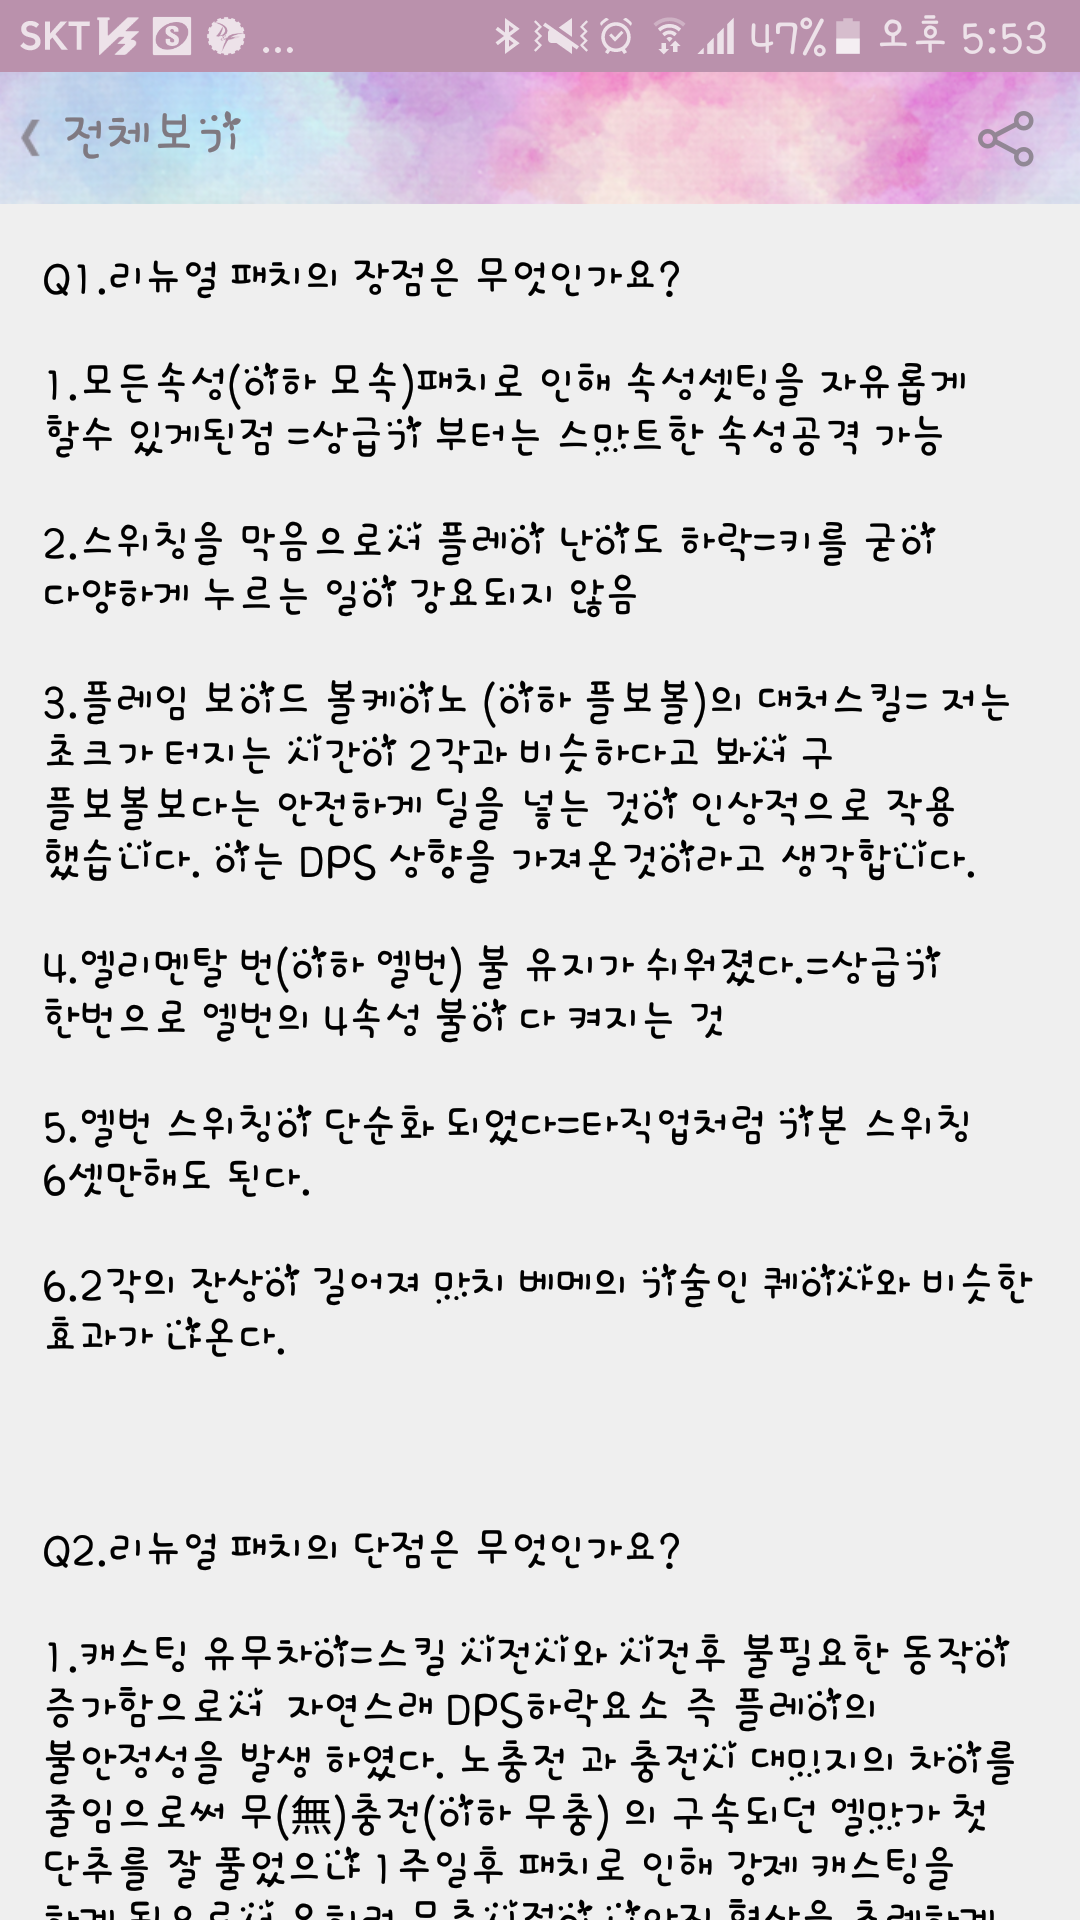 SKT ... 47% 오후 5:53
전체보기
Q1.리뉴얼 패치의 장점은 무엇인가요?
1.모든속성(이하 모속)패치로 인해 속성셋팅을 자유롭게
할수 있게된점 =상급기 부터는 스맛트한 속성공격 가능
2.스위칭을 막음으로서 플레이 난이도 하락=키를 굳이
다양하게 누르는 일이 강요되지 않음
3.플레임 보이드 볼케이노 (이하 플보볼)의 대처스킬= 저는
초크가 터지는 시간이 2각과 비슷하다고 봐서 구
플보볼보다는 안전하게 딜을 넣는 것이 인상적으로 작용
했습니다. 이는 DPS 상향을 가져온것이라고 생각합니다.
4.엘리멘탈 번(이하 엘번) 불 유지가 쉬워졌다.=상급기
한번으로 엘번의 4속성 불이 다 켜지는 것
5.엘번 스위칭이 단순화 되었다=타직업처럼 기본 스위칭
6셋만해도 된다.
6.2각의 잔상이 길어져 맛치 베메의 기술인 퀘이사와 비슷한
효과가 나온다.
Q2.리뉴얼 패치의 단점은 무엇인가요?
1.캐스팅 유무차이=스킬 시전시와 시전후 불필요한 동작이
증가함으로서 자연스래 DPS하락요소 즉 플레이의
불안정성을 발생 하였다. 노충전 과 충전시 대미지의 차이를
줄임으로써 무(無)충전(이하 무충) 의 구속되던 엘마가 첫
단추를 잘 풀었으나 1주일후 패치로 인해 강제 캐스팅을